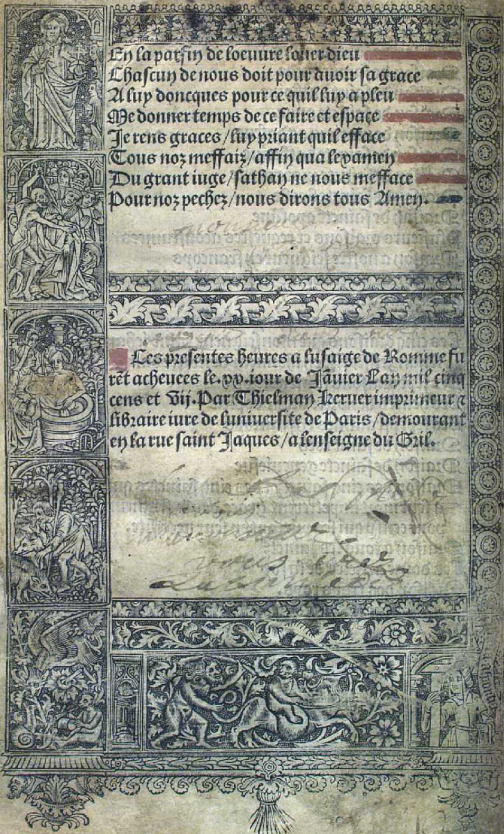 En la parfin de loeuure louer dieu
Chascun de nous doit pour auoir sa grace
A luy doncques pour ce quil luy a pleu
Me donner temps de ce faire et espace
Je rens graces / luy priant quil efface
Tous noz meffaiz / affin qua le xamen
Du grant iuge / sathan ne nous mefface
Pour noz pechez / nous dirons tous Amen.
Ces presentes heures a lusaige de Romme fu
rēt acheuees le .xx. iour de Januier Lan mil cinq
cens et vij. Par Thielman Keruer imprimeur ⁊
libraire iure de luniuersite de Paris / demourant
en la rue saint Jaques / a lenseigne du Gril.